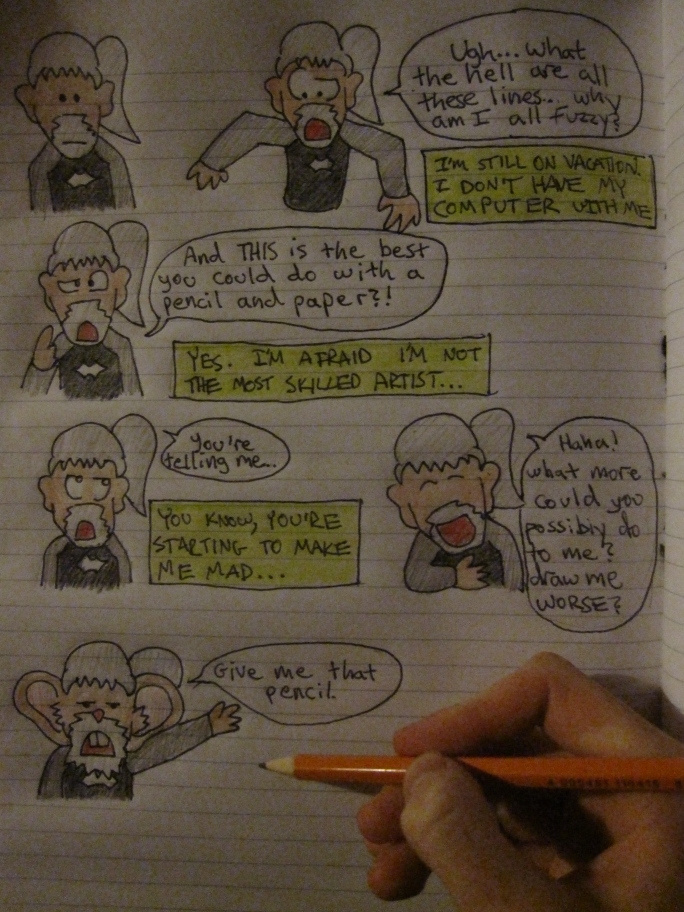 Ugh... what
the hell are all
these lines... why
am I all fuzzy?
I'M STILL ON VACATION.
I DON'T HAVE MY
COMPUTER WITH ME
And THIS is the best
you could do with a
pencil and paper?!
YES. I'M AFRAID I'M NOT
THE MOST SKILLED ARTIST...
You're
telling me...
YOU KNOW, YOU'RE
STARTING TO MAKE
ME MAD...
Haha!
what more
could you
possibly do
to me?
draw me
WORSE?
Give me that
pencil.